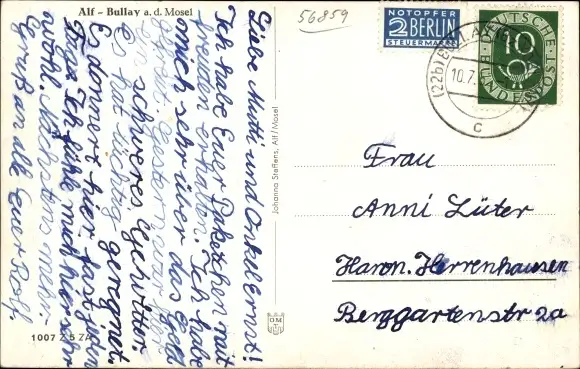 Alf - Bullay a. d. Mosel
56859
NOTOPFER
2 BERLIN
STEUERMARKE
DEUTSCHE
BUNDESPOST
10
(22b) BULLAY
10.7.
c
Liebe Mutti und Onkel Ernst!
Ich habe Euer Paketchen mit
Freuden erhalten. Ich habe
mich sehr über das Geld
Gestern war
ein schweres Gewitter.
Es hat tüchtig geregnet.
Es donnert hier fast jeden
Tag. Ich fühle mich hier sehr
wohl. Nächstens mehr.
Gruß an alle Euer Rolf.
Johanna Steffens, Alf/Mosel
Frau
Anni Lüter
Hann. Herrenhausen
Berggartenstr 2a
1007 Z 5 ZA